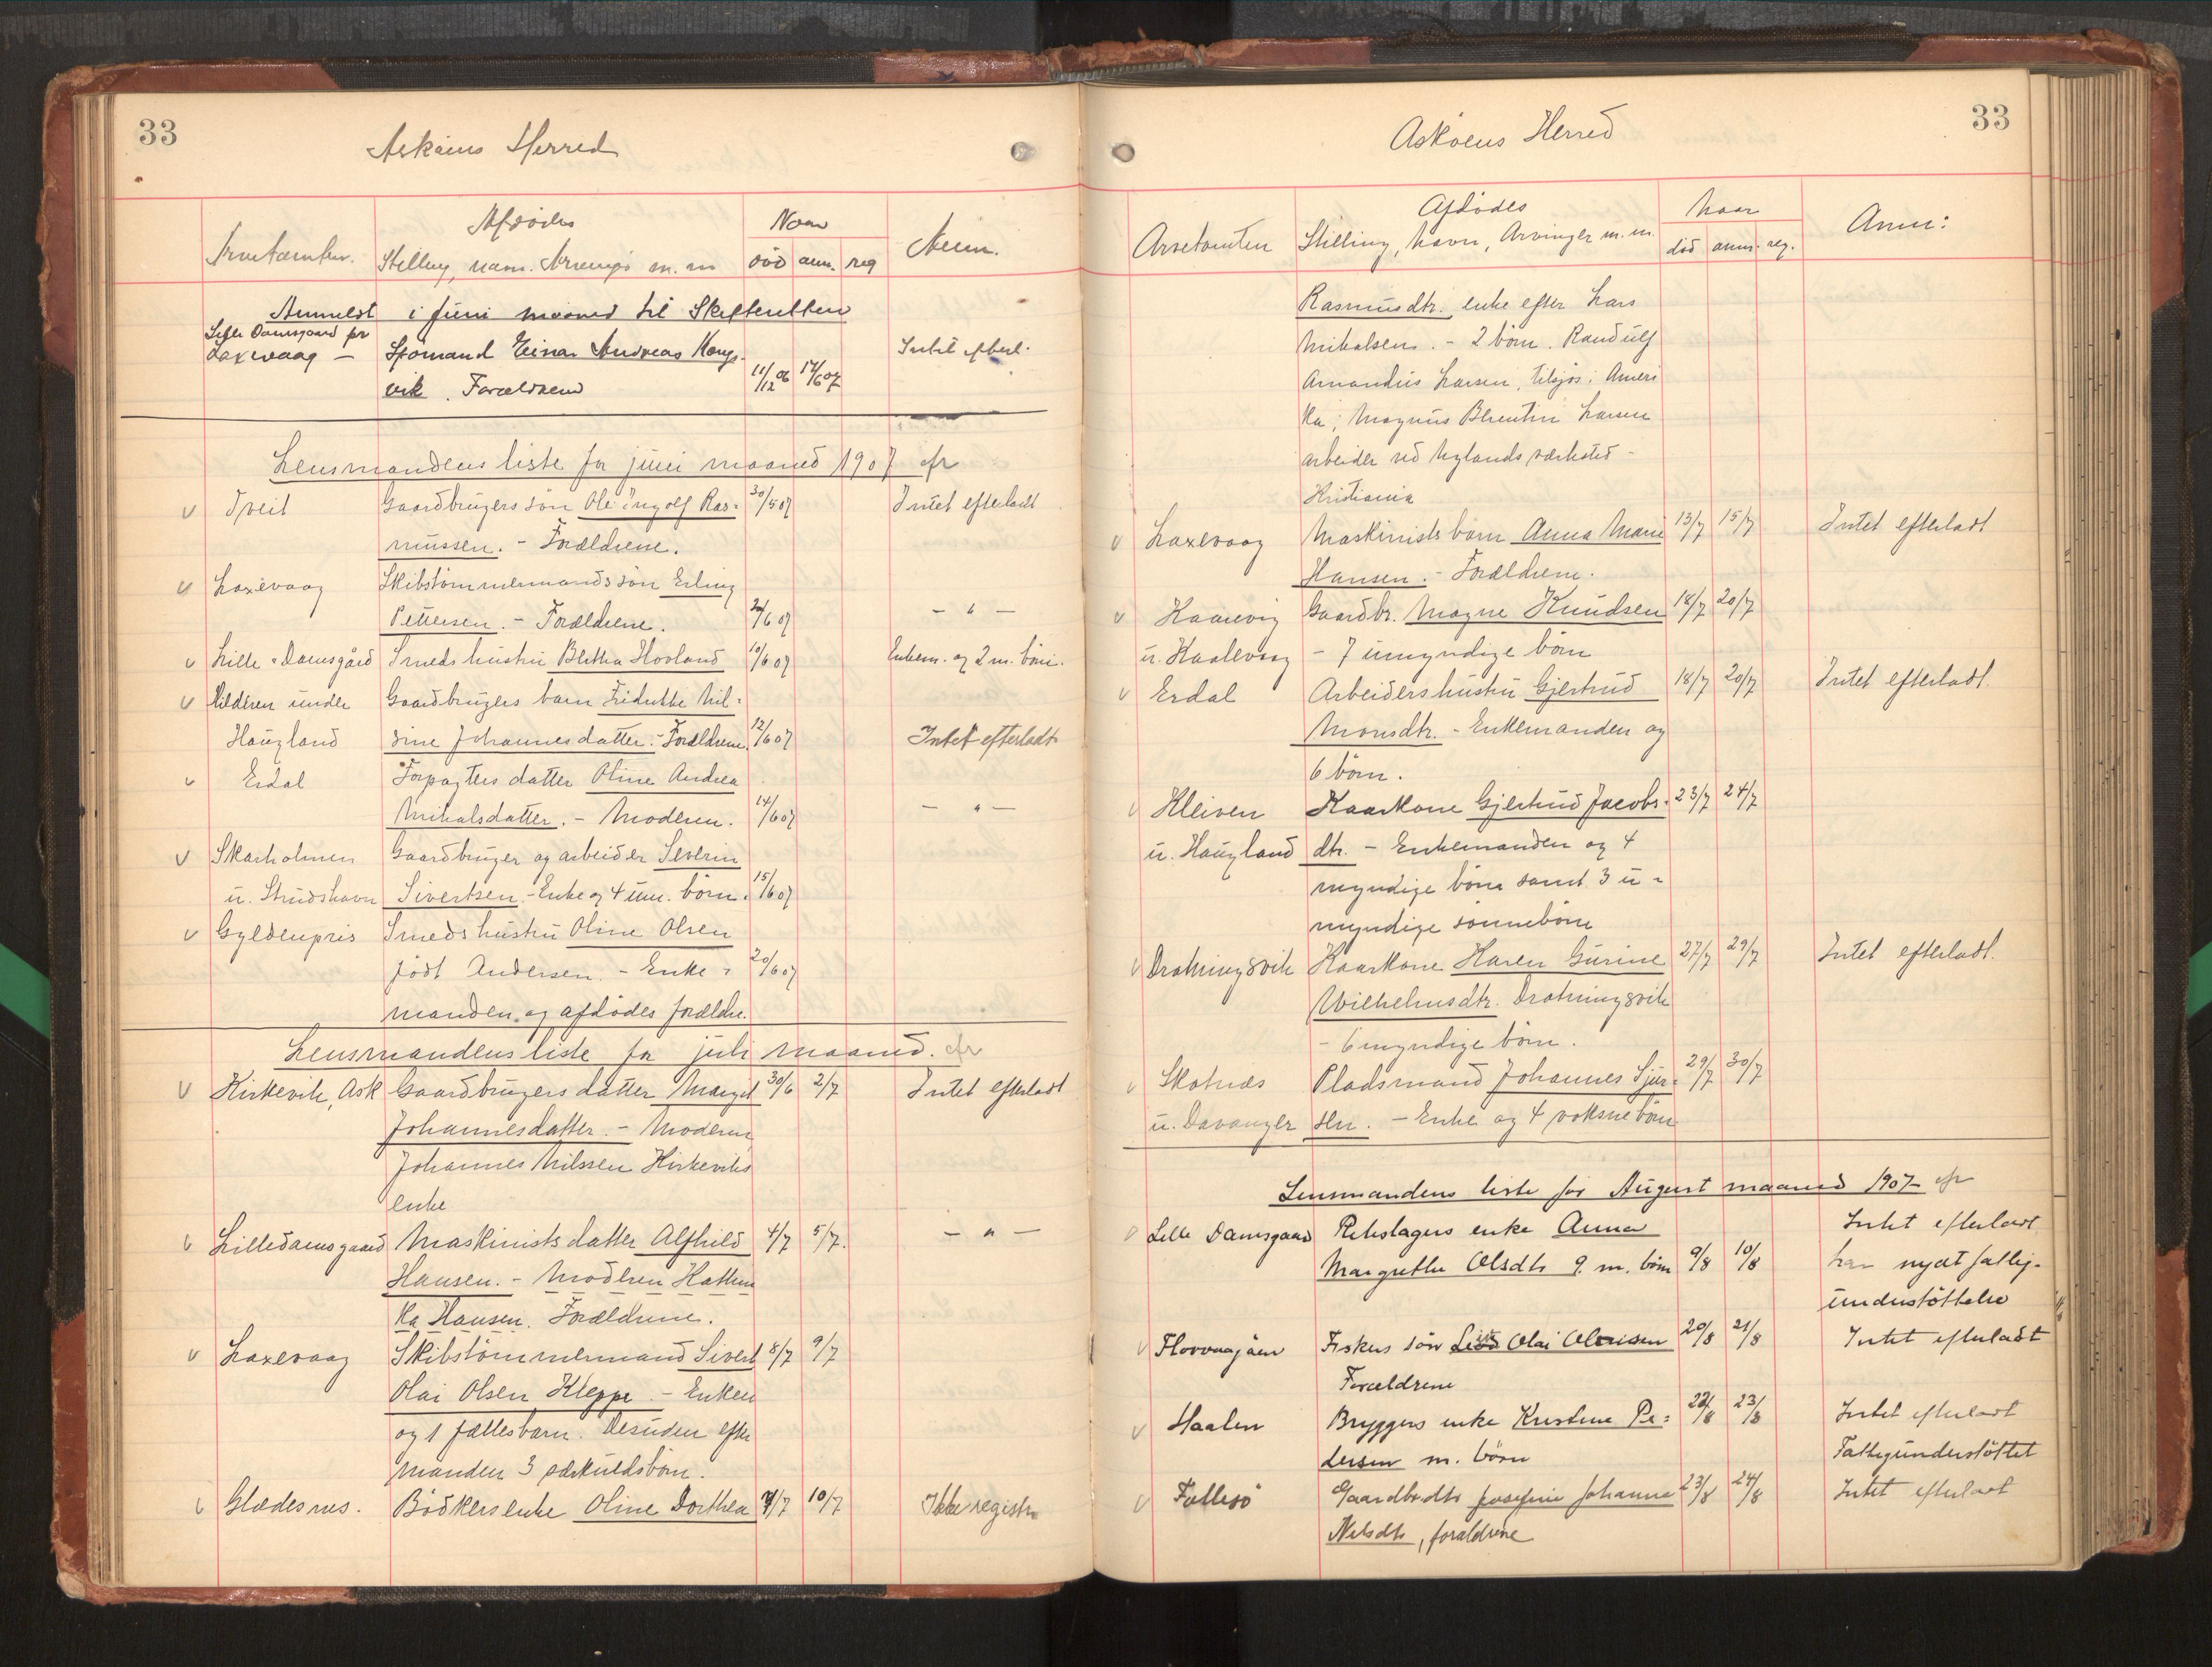 33
Askøens Herred
Arvetomten.
Afdødes
Stilling, navn, Arvinger m. m
Naar
død anm. reg
Anm.
Anmeldt i juni maaned til Skifteretten
Lille Damsgaard pr
Laxevaag — Sjømand Einar Andreas Kongs- 11/12 06 17/6 07 Intet efterl.
vik. Forældrene
Lensmandens liste for juni maaned 1907
v Tveit Gaardbrugers søn Ole Ingolf Ras= 30/5 07 Intet efterladt
mussen. - Forældrene.
v Laxevaag Skibstømmermands søn Erling
Pettersen. - Forældrene. /6 07 — " —
v Lille-Damsgård Smeds hustru Blitha Hovland 10/6 07 Enkem. og 2 m. børn.
v Vildren under Gaardbrugers barn Fridutte Nil=
Haugland sine Johannesdatter. - Forældrene 12/6 07 Intet efterladt
v Erdal Forpagters datter Oline Andrea
Mikalsdatter. - Moderen. 14/6 07 — " —
v Skarholmen Gaardbruger og arbeider Severin
u. Strudshavn Sivertsen. - Enke og 4 um. børn. 15/6 07
v Gyldenpris Smeds hustru Oline Olsen
født Andersen. - Enke= 20/6 07
manden og afdødes forældre.
Lensmandens liste for juli maaned.
v Kirkevik, Ask Gaardbrugers datter Margit 30/6 2/7 Intet efterladt
Johannesdatter. - Moderen
Johannes Nilssen Kirkeviks
enke
v Lilledamsgaard Maskinists datter Alfhild 4/7 5/7. — " —
Hansen. - Moderen Kathin
ka Hansen. Forældrene.
v Laxevaag Skibstømmermand Sivert 8/7 9/7
Olai Olsen Kleppe. - Enken
og 1 fællesbarn. Desuden efter
manden 3 særkuldsbørn.
v Glædesnes. Bødkers enke Oline Dorthea 9/7 10/7 Ikke registr
33
Askøens Herred
Arvetomten
Afdødes
Stilling, navn, Arvinger m. m.
Naar
død anm. reg.
Anm:
Rasmusdtr. enke efter Lars
Mikalsen. - 2 børn. Randulf
Amandus Larsen, tilsjøs i Ameri
ka; Magnus Blrentin Larsen
arbeider ved Nylands værksted -
Kristiania
v Laxevaag Maskinists barn Anna Marie 13/7 15/7 Intet efterladt
Hansen. - Forældrene.
v Kaarevig Gaardbr. Magne Knudsen 18/7 20/7
u. Kaalevaag - 7 umyndige børn
v Erdal Arbeiders hustru Gjertrud 18/7 20/7 Intet efterladt.
Monsdtr. - Enkemanden og
6 børn.
v Kleiven Kaarkone Gjertrud Jacobs- 23/7 24/7
u. Haugland dtr. - Enkemanden og 4
myndige børn samt 3 u-
myndige sønnebørn
v Drotningsvik Kaarkone Karen Gurine 27/7 29/7 Intet efterladt.
Wilhelmsdtr. Drotningsvik
- 6 myndige børn.
v Skotnes Pladsmand Johannes Sjur= 29/7 30/7
u. Davanger sen. - Enke og 4 voksne børn
Lensmandens liste for August maaned 1907
v Lille Damsgaard Rebslagers enke Anna Intet efterladt
Margrethe Olsdtr 9. m. børn 9/8 10/8 har nydt fattig-
understøttelse
v Florvaagøen Fiskers søn Olai Olensen 20/8 21/8 Intet efterladt
Forældrene
v Haalen Bryggers enke Kristine Pe= 22/8 23/8 Intet efterladt
dersen m. børn Fattigunderstøttet
v Follesø Gaardbrdtr Josefine Johanna 23/8 24/8 Intet efterladt
Nilsdtr, forældrene